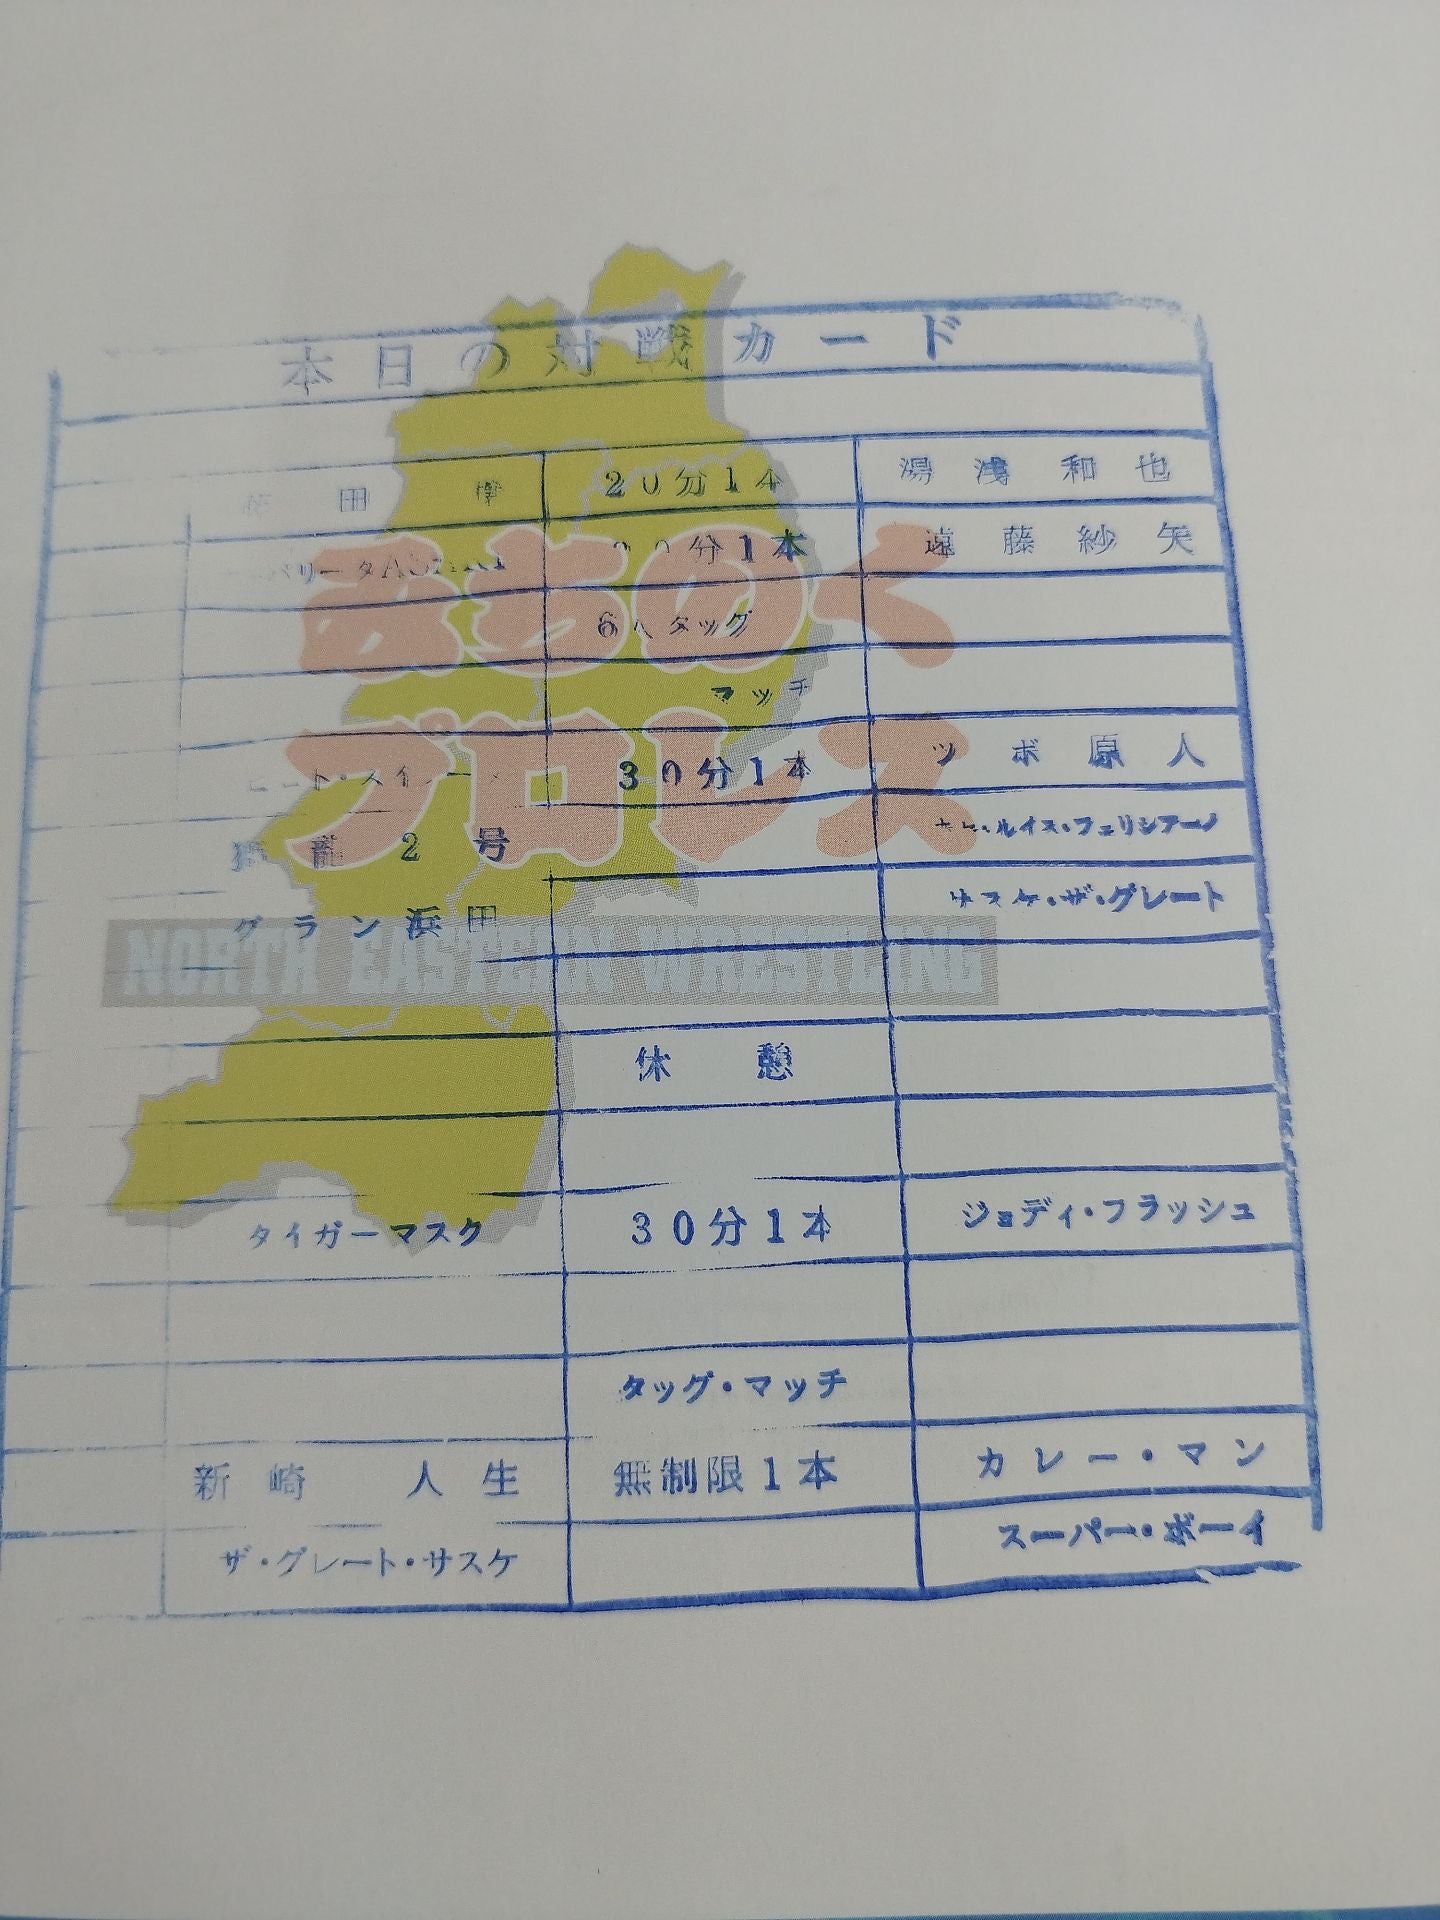 本日の対戦カード
田 20分1本 湯浅和也
分1本 遠藤紗矢
みちのく
6人タッグ
マッチ
プロレス
30分1本 ツボ原人
ルイス・フェリシアーノ
龍2号
サスケ・ザ・グレート
グラン浜田
NORTH EASTERN WRESTLING
休憩
タイガーマスク 30分1本 ジョディ・フラッシュ
タッグ・マッチ
新崎 人生 無制限1本 カレー・マン
スーパー・ボーイ
ザ・グレート・サスケ